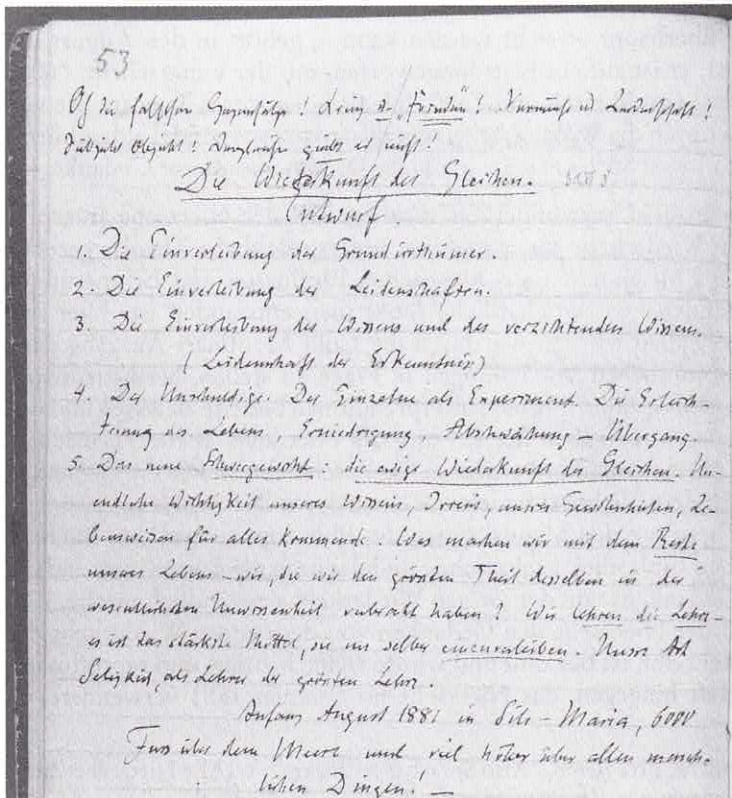 53
Oh die falschen Gegensätze! Krieg u. „Frieden"! Vernunft und Leidenschaft!
Subjekt Objekt! Dergleichen giebt es nicht!
Die Wiederkunft des Gleichen.
Entwurf.
1. Die Einverleibung der Grundirrthümer.
2. Die Einverleibung der Leidenschaften.
3. Die Einverleibung des Wissens und des verzichtenden Wissens.
(Leidenschaft der Erkenntniss)
4. Der Unschuldige. Der Einzelne als Experiment. Die Erleich-
terung des Lebens, Erniedrigung, Abschwächung – Übergang.
5. Das neue Schwergewicht: die ewige Wiederkunft des Gleichen. Un-
endliche Wichtigkeit unseres Wissens, Irrens, unsrer Gewohnheiten, Le-
bensweisen für alles Kommende. Was machen wir mit dem Reste
unseres Lebens – wir, die wir den grössten Theil desselben in der
wesentlichsten Unwissenheit verbracht haben? Wir lehren die Lehre –
es ist das stärkste Mittel, sie uns selber einzuverleiben. Unsre Art
Seligkeit, als Lehrer der grössten Lehre.
Anfang August 1881 in Sils-Maria, 6000
Fuss über dem Meere und viel höher über allen mensch-
lichen Dingen! –